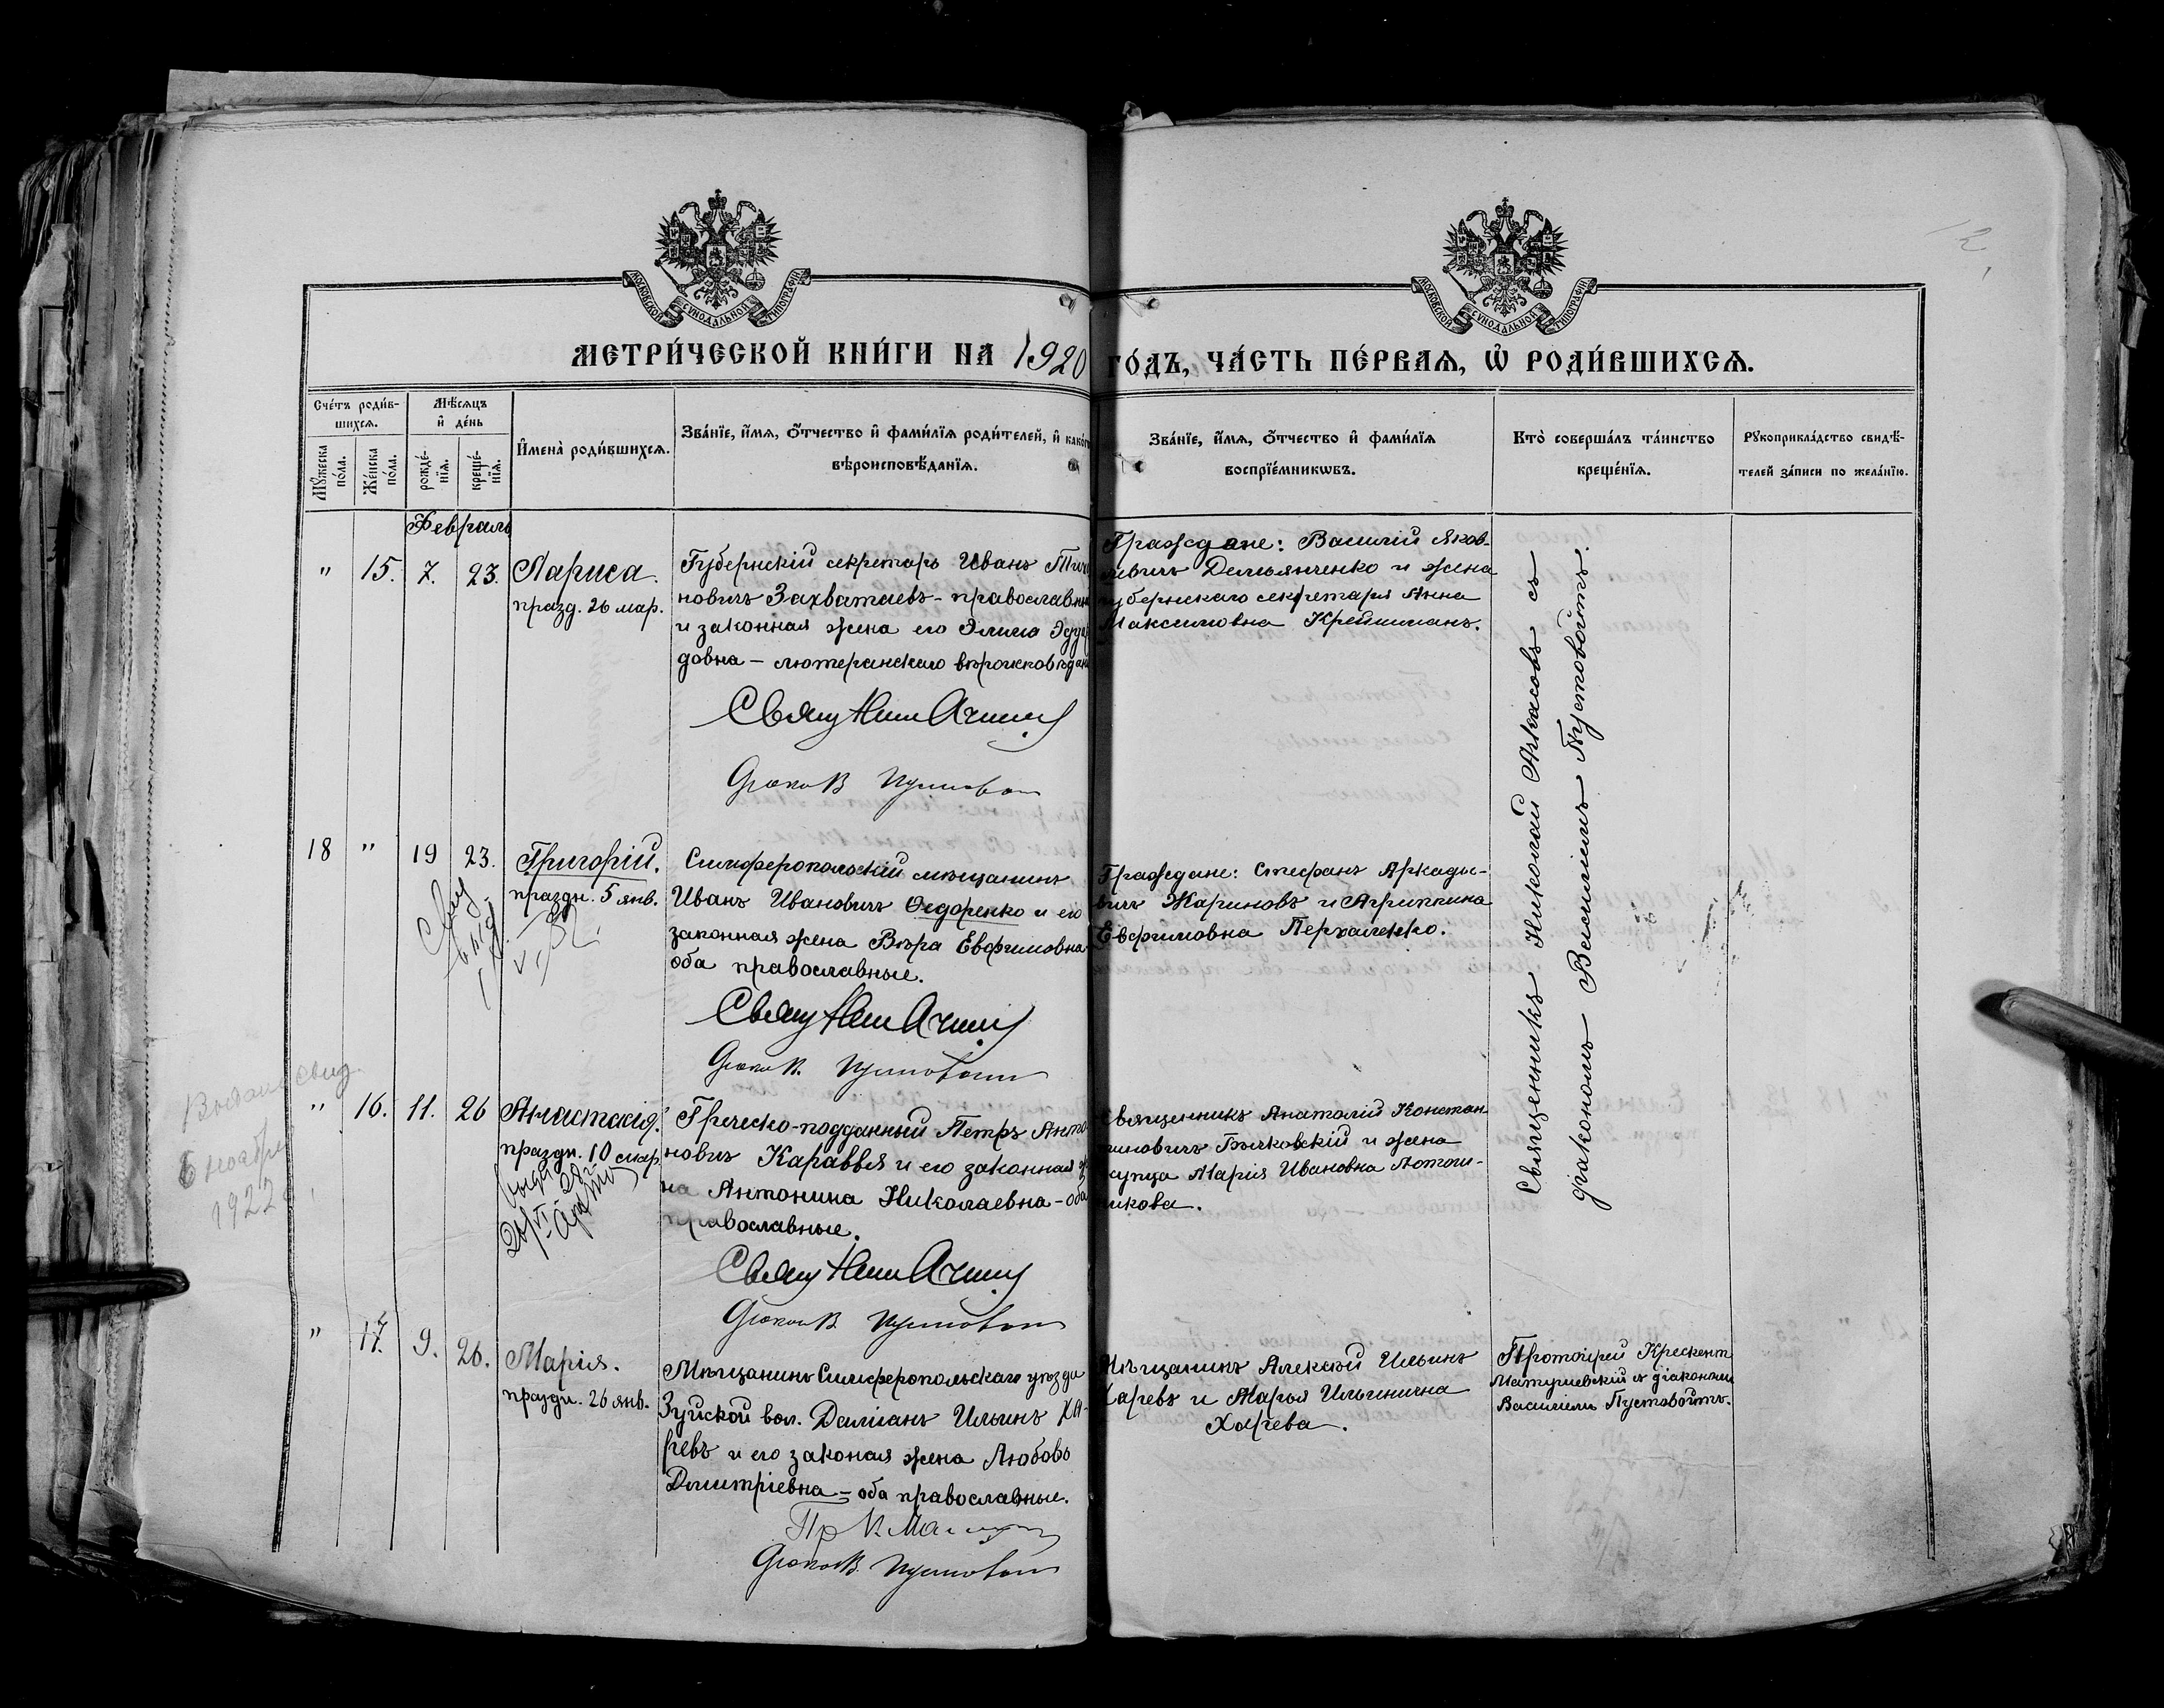 МОСКОВСКОЙ СѴНОДАЛЬНОЙ ТИПОГРАФІИ
МОСКОВСКОЙ СѴНОДАЛЬНОЙ ТИПОГРАФІИ
12
МЕТРИ́ЧЕСКОЙ КНИ́ГИ НА 1920 ГО́ДЪ, ЧА́СТЬ ПЕ́РВАѦ, Ѡ҆ РОДИ́ВШИХСѦ.
Сче́тъ роди́в-
шихсѧ.
Мꙋ́жеска по́ла.
Же́нска по́ла.
Мѣ́сѧцъ
и҆ де́нь
рожде́-
нїѧ.
креще́-
нїѧ.
И҆мена̀ роди́вшихсѧ.
Зва́нїе, и҆́мѧ, ѻ҆́тчество и҆ фами́лїѧ роди́телей, и҆ како́г
вѣроисповѣ́данїѧ.
Зва́нїе, и҆́мѧ, ѻ҆́тчество и҆ фами́лїѧ
воспрїе́мникѡвъ.
Кто̀ соверша́лъ та́инство
креще́нїѧ.
Рꙋкоприкла́дство свидѣ́-
телей за́писи по жела́нїю.
Февраль
" 15. 7. 23. Лариса.
празд. 26 мар.
Губернскій секретарь Иванъ
новичъ Захватаевъ - православн
и законная жена его Элиза Эдуар
довна — лютеранскаго вѣроисповѣдані
Свящ Ник
Діакон В Пустовойт
Граждане: Василій Яков-
левичъ Демьянченко и жена
губернскаго секретаря Анна
Максимовна Крейшманъ.
Священникъ Николай съ
діакономъ Василіемъ Пустовойтъ.
18 " 19 23. Григорій.
праздн. 5 янв.
Симферопольскій мѣщанинъ
Иванъ Ивановичъ Ѳедоренко и его
законная жена Вѣра Евфимовна
оба православные.
Свящ Ник
Діакон В. Пустовойт
Граждане: Стефанъ Аркадье-
вичъ Жариновъ и Агриппина
Евфимовна
свид.
6 ноября
1922
" 16. 11. 26 Анастасія.
праздн. 10 мар.
Греческо-подданный Петръ Анто-
новичъ Каравья и его законная ж
на Антонина Николаевна - оба
православные.
Свящ Ник
Діакон В. Пустовойт
Священникъ Анатолій Констан
тиновичъ Бычковскій и жена
купца Марія Ивановна
никова.
" 17. 9. 26. Марія.
праздн. 26 янв.
Мѣщанинъ Симферопольскаго уѣзда
Зуйской вол. Даміанъ Ильинъ Ха-
ревъ и его законая жена Любовь
Димитріевна — оба православные.
Пр К. Ма
Діакон В. Пустовойт
Мѣщанинъ Алексѣй Ильинъ
Харевъ и Марья Ильинична
Харева.
Протоіерей Крескент
Матушевскій съ діакономъ
Василіемъ Пустовойтъ.